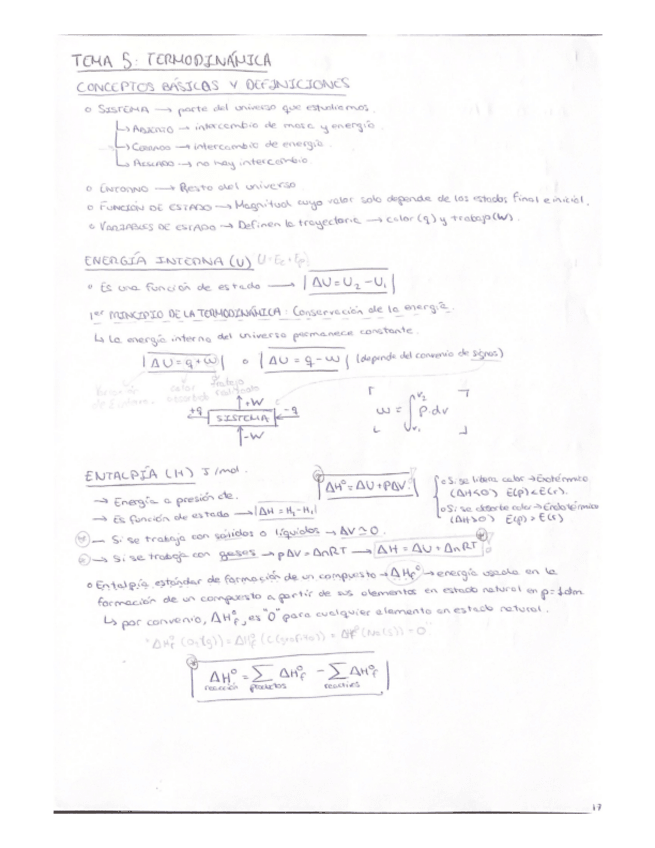 TEMA 5: TERMODINÁMICA
CONCEPTOS BÁSICOS Y DEFINICIONES
o SISTEMA → parte del universo que estudiamos.
↳ ABIERTO → intercambio de masa y energía
↳ CERRADO → intercambio de energía
↳ AISLADO → no hay intercambio
o ENTORNO → Resto del universo
o FUNCIÓN DE ESTADO → Magnitud cuyo valor solo depende de los estados final e inicial.
o VARIABLES DE ESTADO → Definen la trayectoria → calor (q) y trabajo (W).
ENERGÍA INTERNA (U) (U = Ec + Ep)
o Es una función de estado → |ΔU = U2 - U1|
1er PRINCIPIO DE LA TERMODINÁMICA: Conservación de la energía.
↳ La energía interna del universo permanece constante.
|ΔU = q + w| o |ΔU = q - w| (depende del convenio de signos)
calor
↑+W
+q → SISTEMA ← -q
↑-W
w = ∫ P·dv
V2
V1
ENTALPÍA (H) J/mol.
→ Energía a presión cte.
→ Es función de estado → |ΔH = Hf - Hi|
|ΔHº = ΔU + PΔV|
o Si se libera calor → Exotérmico
(ΔH<0) E(p) < E(r).
o Si se absorbe calor → Endotérmico
(ΔH>0) E(p) > E(r)
→ Si se trabaja con sólidos o líquidos → ΔV ≃ 0.
→ Si se trabaja con gases → pΔV = ΔnRT → ΔH = ΔU + ΔnRT
o Entalpía estándar de formación de un compuesto → ΔHfº → energía usada en la
formación de un compuesto a partir de sus elementos en estado natural en p = 1 atm.
↳ por convenio, ΔHfº, es "0" para cualquier elemento en estado natural.
"ΔHfº (O2(g)) = ΔHfº (C(grafito)) = ΔHfº (Na(s)) = 0"
ΔHº = ∑ ΔHfº - ∑ ΔHfº
reacción productos reactivos
17